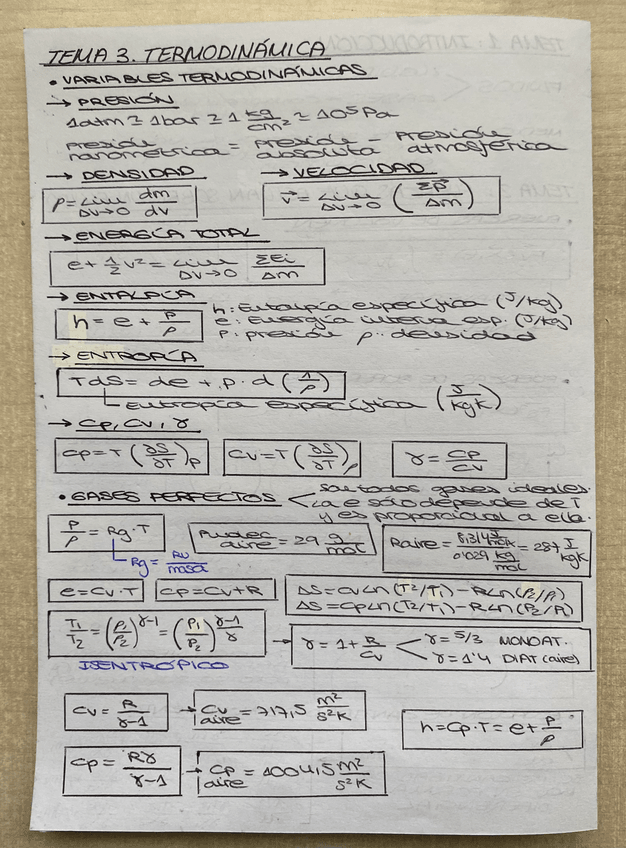 TEMA 3. TERMODINÁMICA
• VARIABLES TERMODINÁMICAS
→ PRESIÓN
1atm ≃ 1bar ≃ 1 kg/cm² ≃ 10⁵ Pa
presión manométrica = presión absoluta - presión atmosférica
→ DENSIDAD → VELOCIDAD
ρ = Lim ΔV→0 dm/dv    v⃗ = Lim ΔV→0 (Σp⃗/Δm)
→ ENERGÍA TOTAL
e + 1/2 v² = Lim ΔV→0 ΣEi/Δm
→ ENTALPÍA
h = e + P/ρ
h: Entalpía específica (J/kg)
e: Energía interna esp. (J/kg)
P: presión ρ: densidad
→ ENTROPÍA
TdS = de + p · d(1/ρ)
Entropía específica (J/kgK)
→ Cp, Cv, γ
Cp = T(∂S/∂T)p    Cv = T(∂S/∂T)ρ    γ = Cp/Cv
• GASES PERFECTOS
Son todos gases ideales.
La e sólo depende de T
y es proporcional a ella.
P/ρ = Rg·T
Rg = Ru/masa
Pmolec aire = 29 g/mol
Raire = 8,314 J/molK / 0'029 kg/mol = 287 J/kgK
e = Cv·T    Cp = Cv + R
ΔS = CvLn(T2/T1) - RLn(ρ2/ρ1)
ΔS = CpLn(T2/T1) - RLn(P2/P1)
T1/T2 = (ρ1/ρ2)^γ-1 = (P1/P2)^γ-1/γ
→ γ = 1 + R/Cv
γ = 5/3 MONOAT.
γ = 1'4 DIAT (aire)
ISENTRÓPICO
Cv = R/γ-1 → Cv aire = 717,5 m²/s²K
h = Cp·T = e + P/ρ
Cp = Rγ/γ-1 → Cp aire = 1004,5 m²/s²K